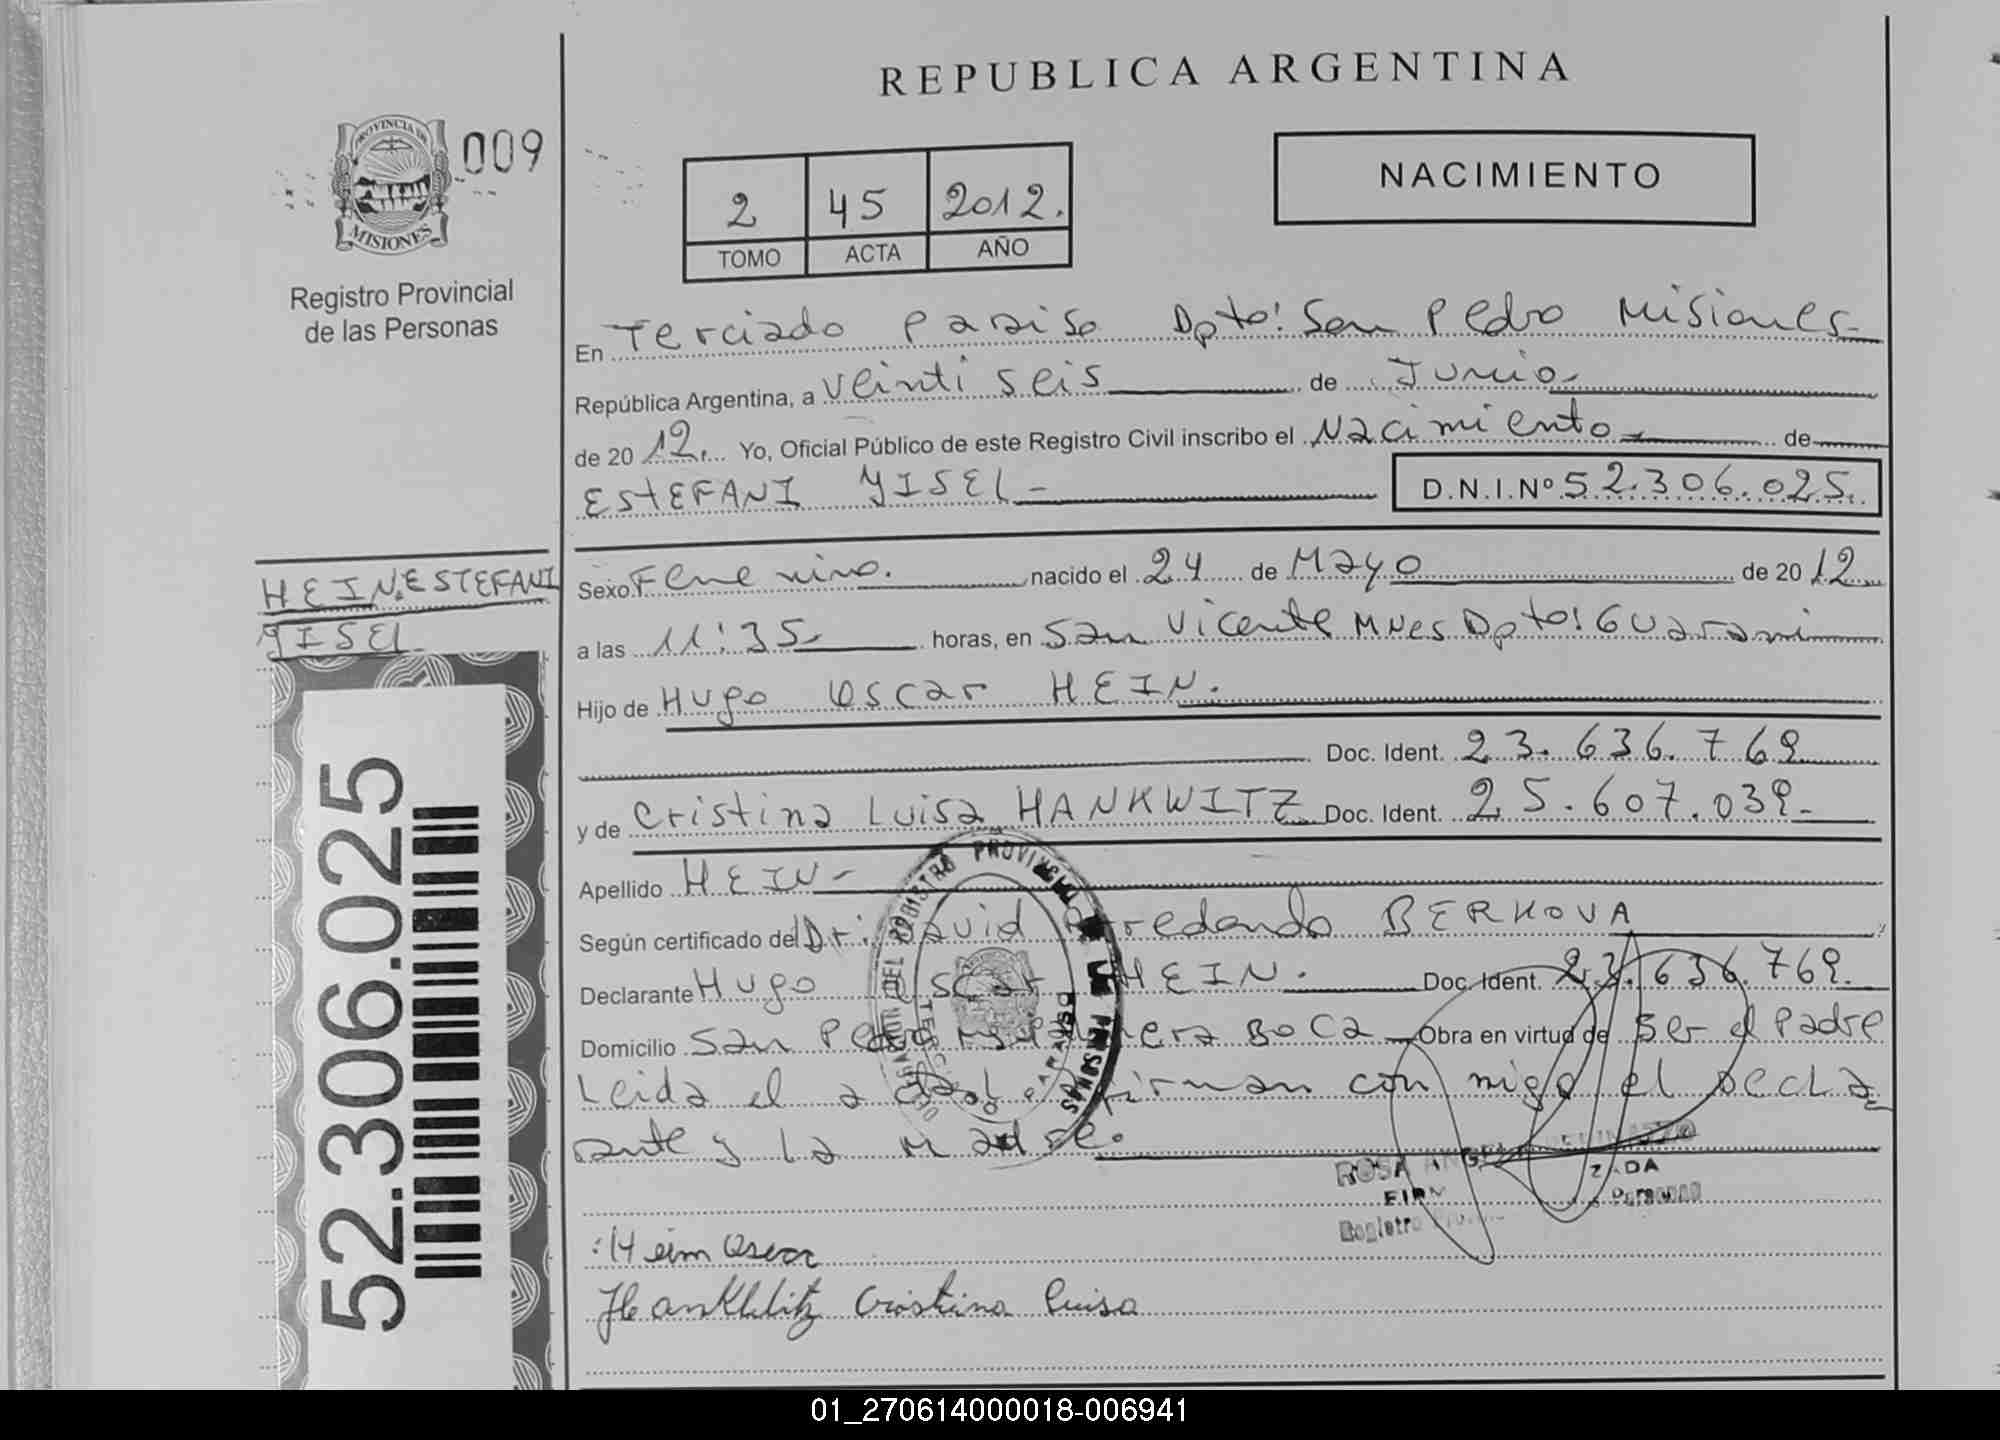 REPUBLICA ARGENTINA
PROVINCIA DE
MISIONES
009
Registro Provincial
de las Personas
2 45 2012.
TOMO ACTA AÑO
NACIMIENTO
En Terciado Paraiso Dpto: San Pedro Misiones
República Argentina, a Veinti seis de Junio
de 2012. Yo, Oficial Público de este Registro Civil inscribo el Nacimiento de
ESTEFANI YISEL D.N.I.Nº 52.306.025.
HEIN ESTEFANI
YISEL
52.306.025
Sexo Femenino. nacido el 24 de Mayo de 2012
a las 11:35 horas, en San Vicente Mnes Dpto: Guarani
Hijo de Hugo Oscar HEIN.
Doc. Ident. 23.636.769
y de Cristina Luisa HANKWITZ Doc. Ident. 25.607.039
Apellido HEIN
Según certificado del Dr. David Arredondo BERKOVA
Declarante Hugo Oscar HEIN. Doc. Ident. 23.636.769.
Domicilio San Pedro Boca Obra en virtud de Ser el Padre
Leida el acta firman con migo el decla
rante y la Madre.
ROSA
Registro
Hein Oscar
Cristina Luisa
01_270614000018-006941